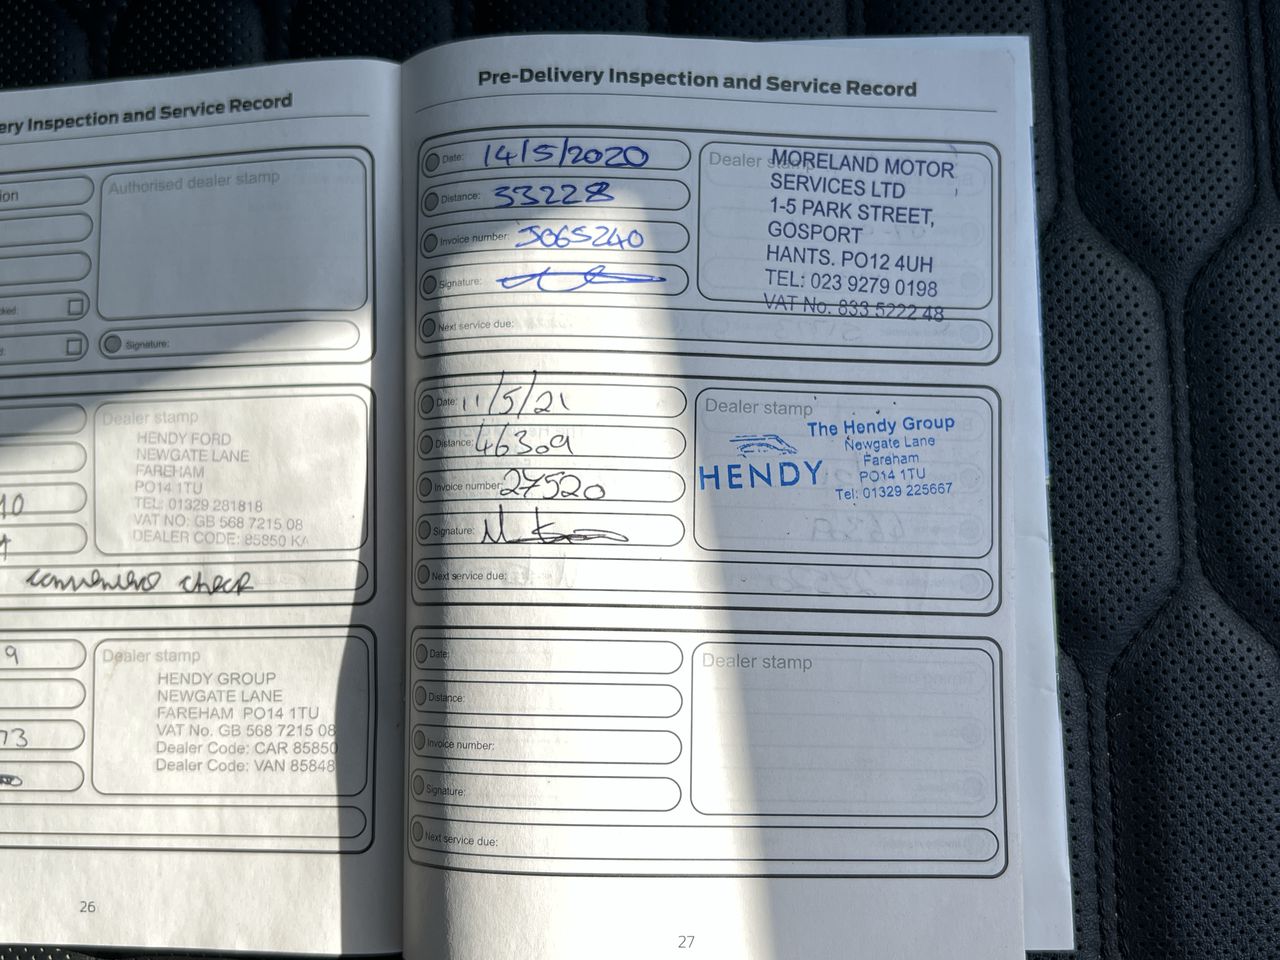 ery Inspection and Service Record
ion
Authorised dealer stamp
cked:
d:
Signature:
Dealer stamp
HENDY FORD
NEWGATE LANE
FAREHAM
PO14 1TU
TEL: 01329 281818
VAT NO: GB 568 7215 08
DEALER CODE: 85850 KA
10
check
9
Dealer stamp
HENDY GROUP
NEWGATE LANE
FAREHAM PO14 1TU
VAT No. GB 568 7215 08
Dealer Code: CAR 85850
Dealer Code: VAN 85848
73
26
Pre-Delivery Inspection and Service Record
Date: 14/5/2020
Distance: 33228
Invoice number: J065240
Signature:
Next service due:
Dealer stamp
MORELAND MOTOR
SERVICES LTD
1-5 PARK STREET,
GOSPORT
HANTS. PO12 4UH
TEL: 023 9279 0198
VAT No. 833 5222 48
Date: 11/5/21
Distance: 46309
Invoice number: 27520
Signature:
Next service due:
Dealer stamp
HENDY
The Hendy Group
Newgate Lane
Fareham
PO14 1TU
Tel: 01329 225667
Date:
Distance:
Invoice number:
Signature:
Next service due:
Dealer stamp
27